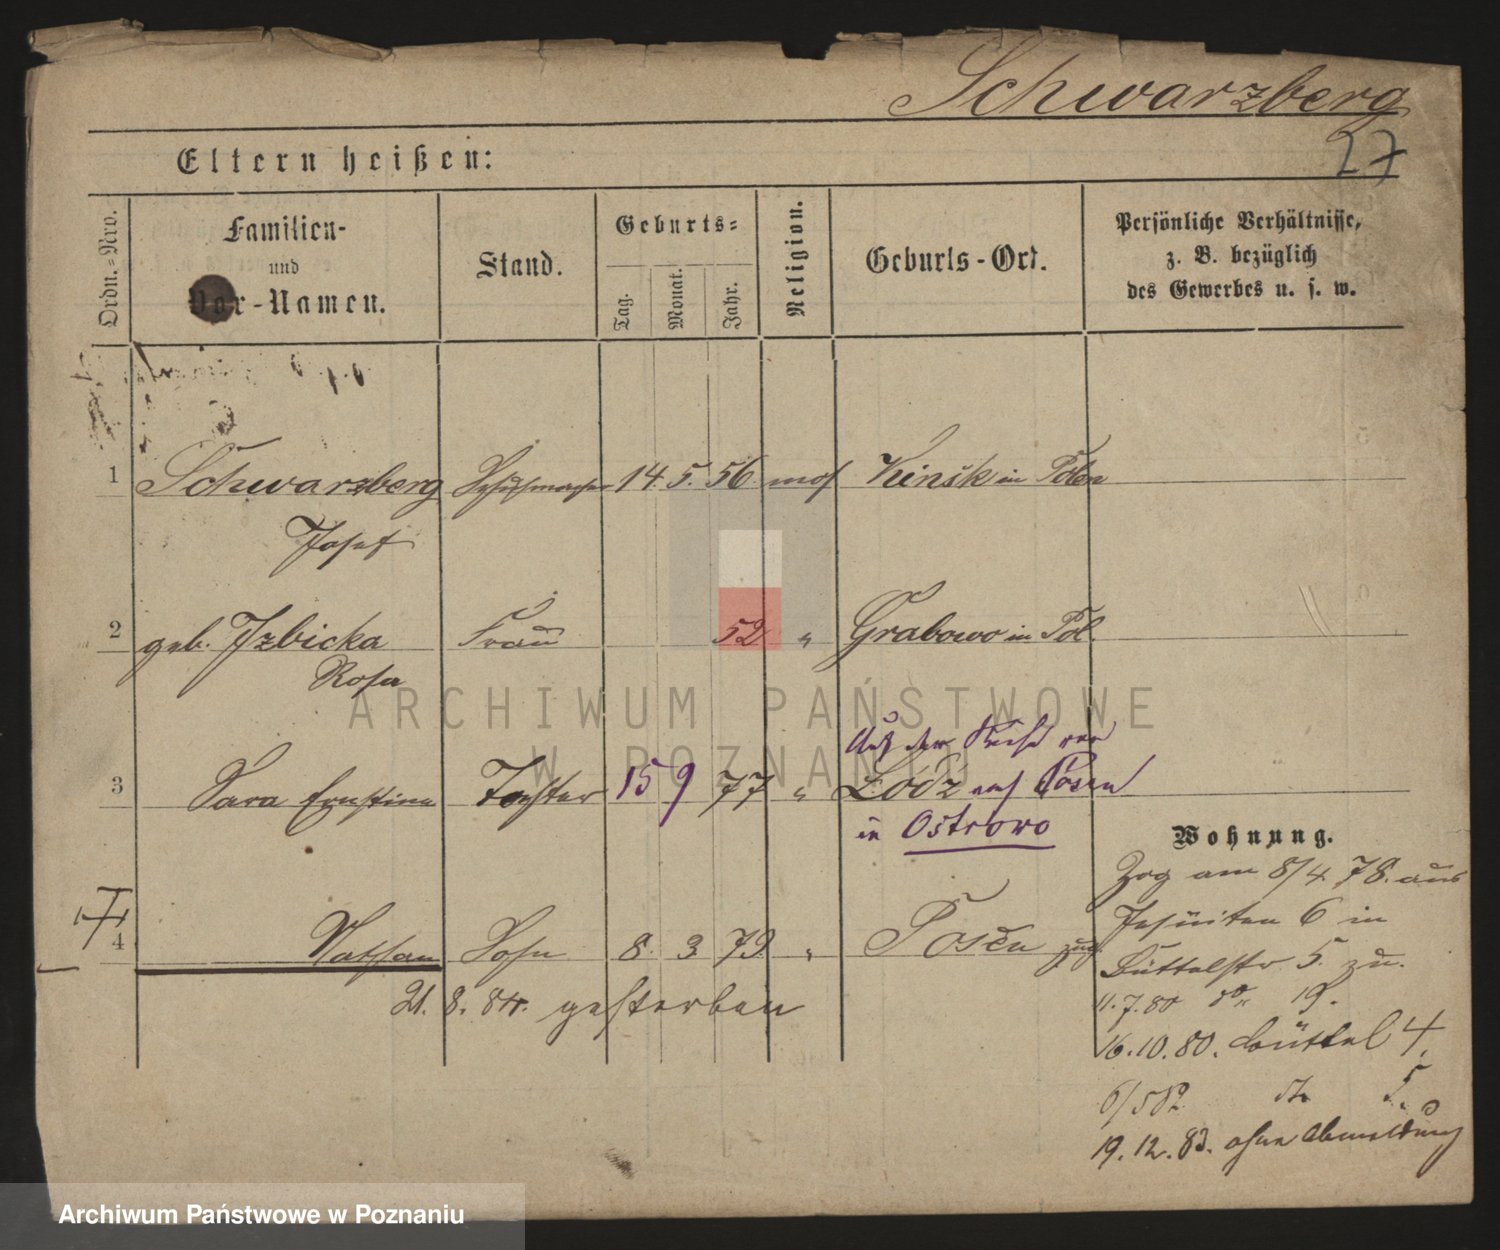 Schwarzberg
27
Eltern heißen:
Ordn.=Nro.
Familien-
und
Vor-Namen.
Stand.
Geburts=
Tag.
Monat.
Jahr.
Religion.
Geburts-Ort.
Persönliche Verhältnisse,
z. B. bezüglich
des Gewerbes u. s. w.
1 Schwarzberg Schuhmacher 14. 5. 56 mos Kinsk in Polen
Josef
2 geb. Izbicka Frau 52 " Grabowo in Pol.
Rosa
Auf der Reise von
3 Sara Ernstine Tochter 15 9 77 " Lodz nach Posen
in Ostrowo
4 Nathan Sohn 8. 3 79. " Posen
21. 8. 84. gestorben
Wohnung.
Zog am 8/4. 78. aus
Jesuiten 6 in
Büttelstr 5. zu.
11.7.80 do 19.
16.10.80. Büttel 4.
6/5 82 do 5.
19.12.83. ohne Abmeldung
ARCHIWUM PAŃSTWOWE
W POZNANIU
Archiwum Państwowe w Poznaniu